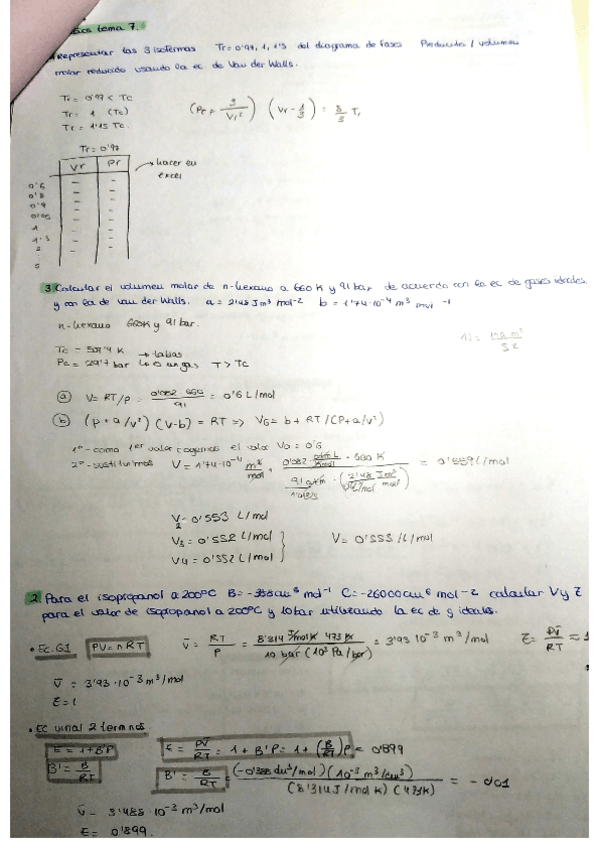 tema 7.
Representar las 3 isotermas Tr = 0'97, 1, 1'3 del diagrama de fases Producido / volumen
molar reducido usando la ec de Van der Walls.
Tr = 0'97 < Tc
Tr = 1 (Tc)
Tr = 1'15 Tc.
(Pr + 3/Vr²) (Vr - 1/3) = 8/3 Tr
Tr = 0'97
Vr Pr
→ hacer en
excel
0'6
0'8
0'9
0'95
1
1'3
2
:
5
3 Calcular el volumen molar de n-hexano a 660 K y 91 bar de acuerdo con la ec de gases ideales.
y con la de Van der Walls. a = 2'48 Jm³ mol⁻² b = 1'74·10⁻⁴ m³ mol⁻¹
n-hexano 660K y 91 bar.
Tc = 507'4 K → tablas
Pc = 29'7 bar gas T > Tc
ⓐ V = RT/P = 0'082·660 / 91 = 0'6 L/mol
ⓑ (P + a/v²) (v-b) = RT => VG = b + RT/(P + a/v²)
1º - como 1er valor cogemos el valor V0 = 0'6
2º - sustituimos V = 1'74·10⁻⁴ m³/mol + = 0'559 L/mol
V2 = 0'553 L/mol
V3 = 0'552 L/mol
V4 = 0'552 L/mol
V = 0'553 L/mol
2. Para el isopropanol a 200ºC B = -388 cm³ mol⁻¹ C = -26000 cm⁶ mol⁻² calcular V y Z
para el valor de isopropanol a 200ºC y 10 bar utilizando la ec de g ideales.
• Ec. GI PV = nRT V̄ = RT/P = 8'314 J/mol K 473 K / 10 bar (10⁵ Pa/bar) = 3'93 10⁻³ m³/mol Z = PV̄/RT = 1
V̄ = 3'93·10⁻³ m³/mol
Z = 1
• Ec virial 2 terminos
Z = 1 + B'P Z = PV̄/RT = 1 + B'P = 1 + (B/RT) P = 0'899
B' = B/RT B' = B/RT = (-0'388 dm³/mol) (10⁻³ m³/dm³) / (8'314 J/mol K) (473K) = - 0'01
V̄ = 3'488·10⁻³ m³/mol
Z = 0'899.